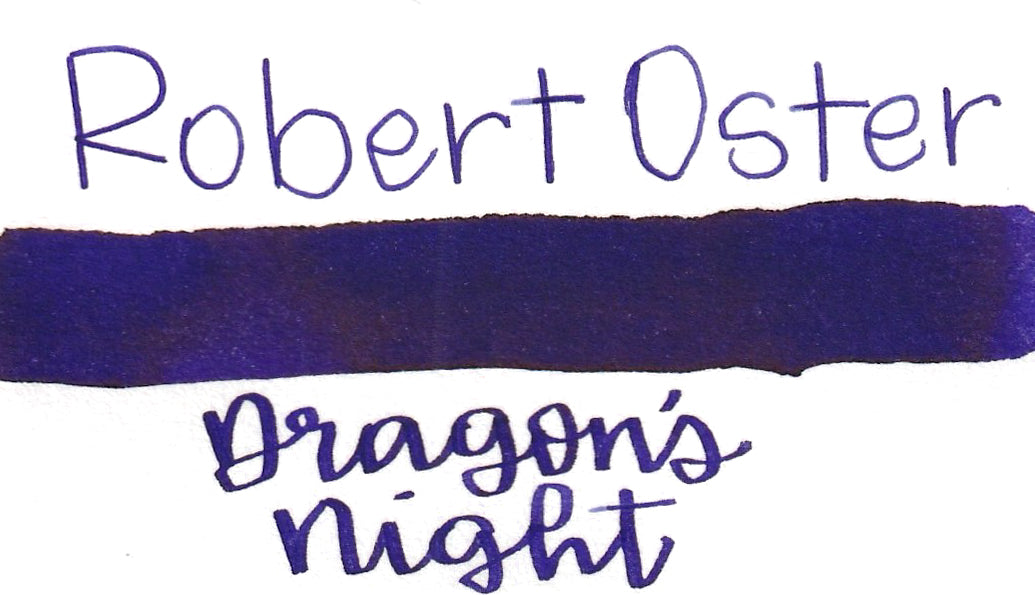 Robert Oster
Dragon's
Night